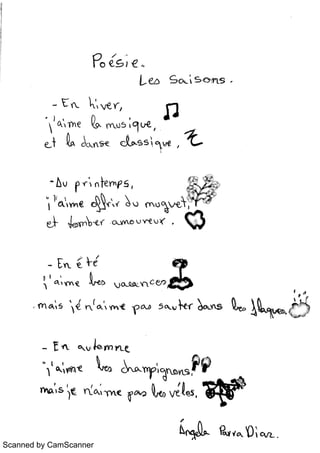 Poésie.
Les Saisons.
- En hiver,
j'aime la musique,
et la danse classique,
- Au printemps,
j'aime offrir du muguet,
et tomber amoureux.
- En été
j'aime les vacances
mais jé n'aime pas sauter dans les flaques,
- En automne
j'aime les champignons,
mais je n'aime pas les vélos,
Ángela Parra Díaz.
Scanned by CamScanner